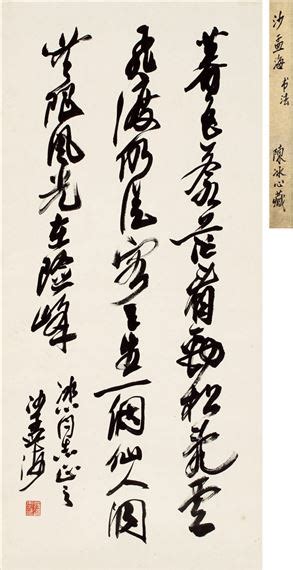 暮色蒼茫看勁松亂雲
飛渡仍從容天生一個仙人洞
無限風光在險峰
冰心同志正之
沙孟海
沙孟海 书法 陳冰心藏